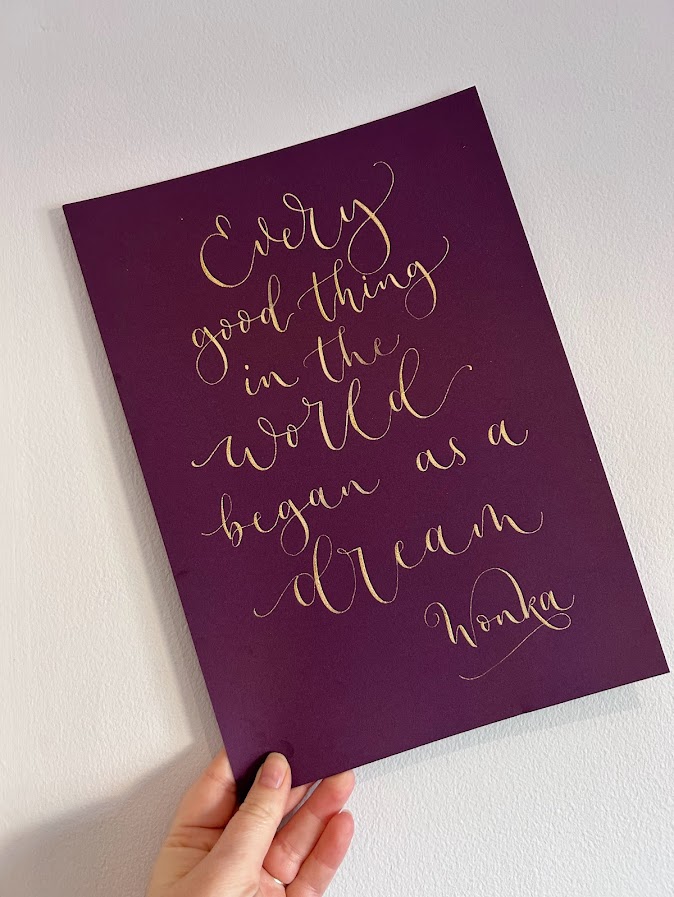 Every
good thing
in the
world
began as a
dream
Wonka